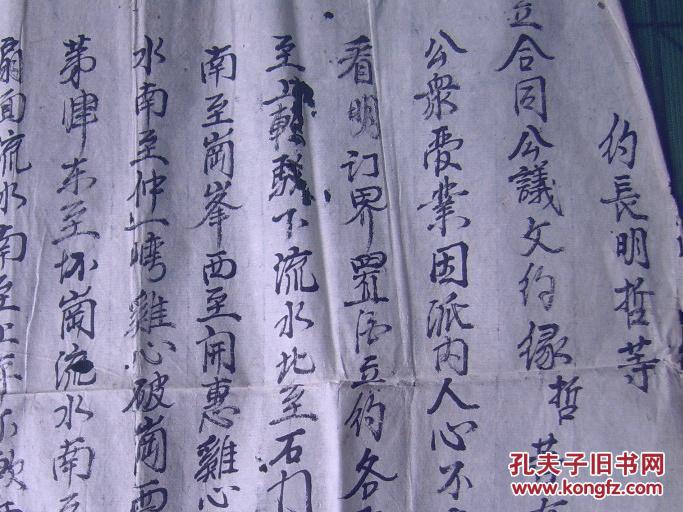 約長明哲等
立合同公議文約缘哲等
公衆受業因派内人心不
看明订界置 立约各
至 下流水北至石
南至崗峯西至開惠雞心
水南至仲一灣雞心破崗西
茅 东至坏崗流水南至
扇面流水南至上
孔夫子旧书网
www.kongfz.com